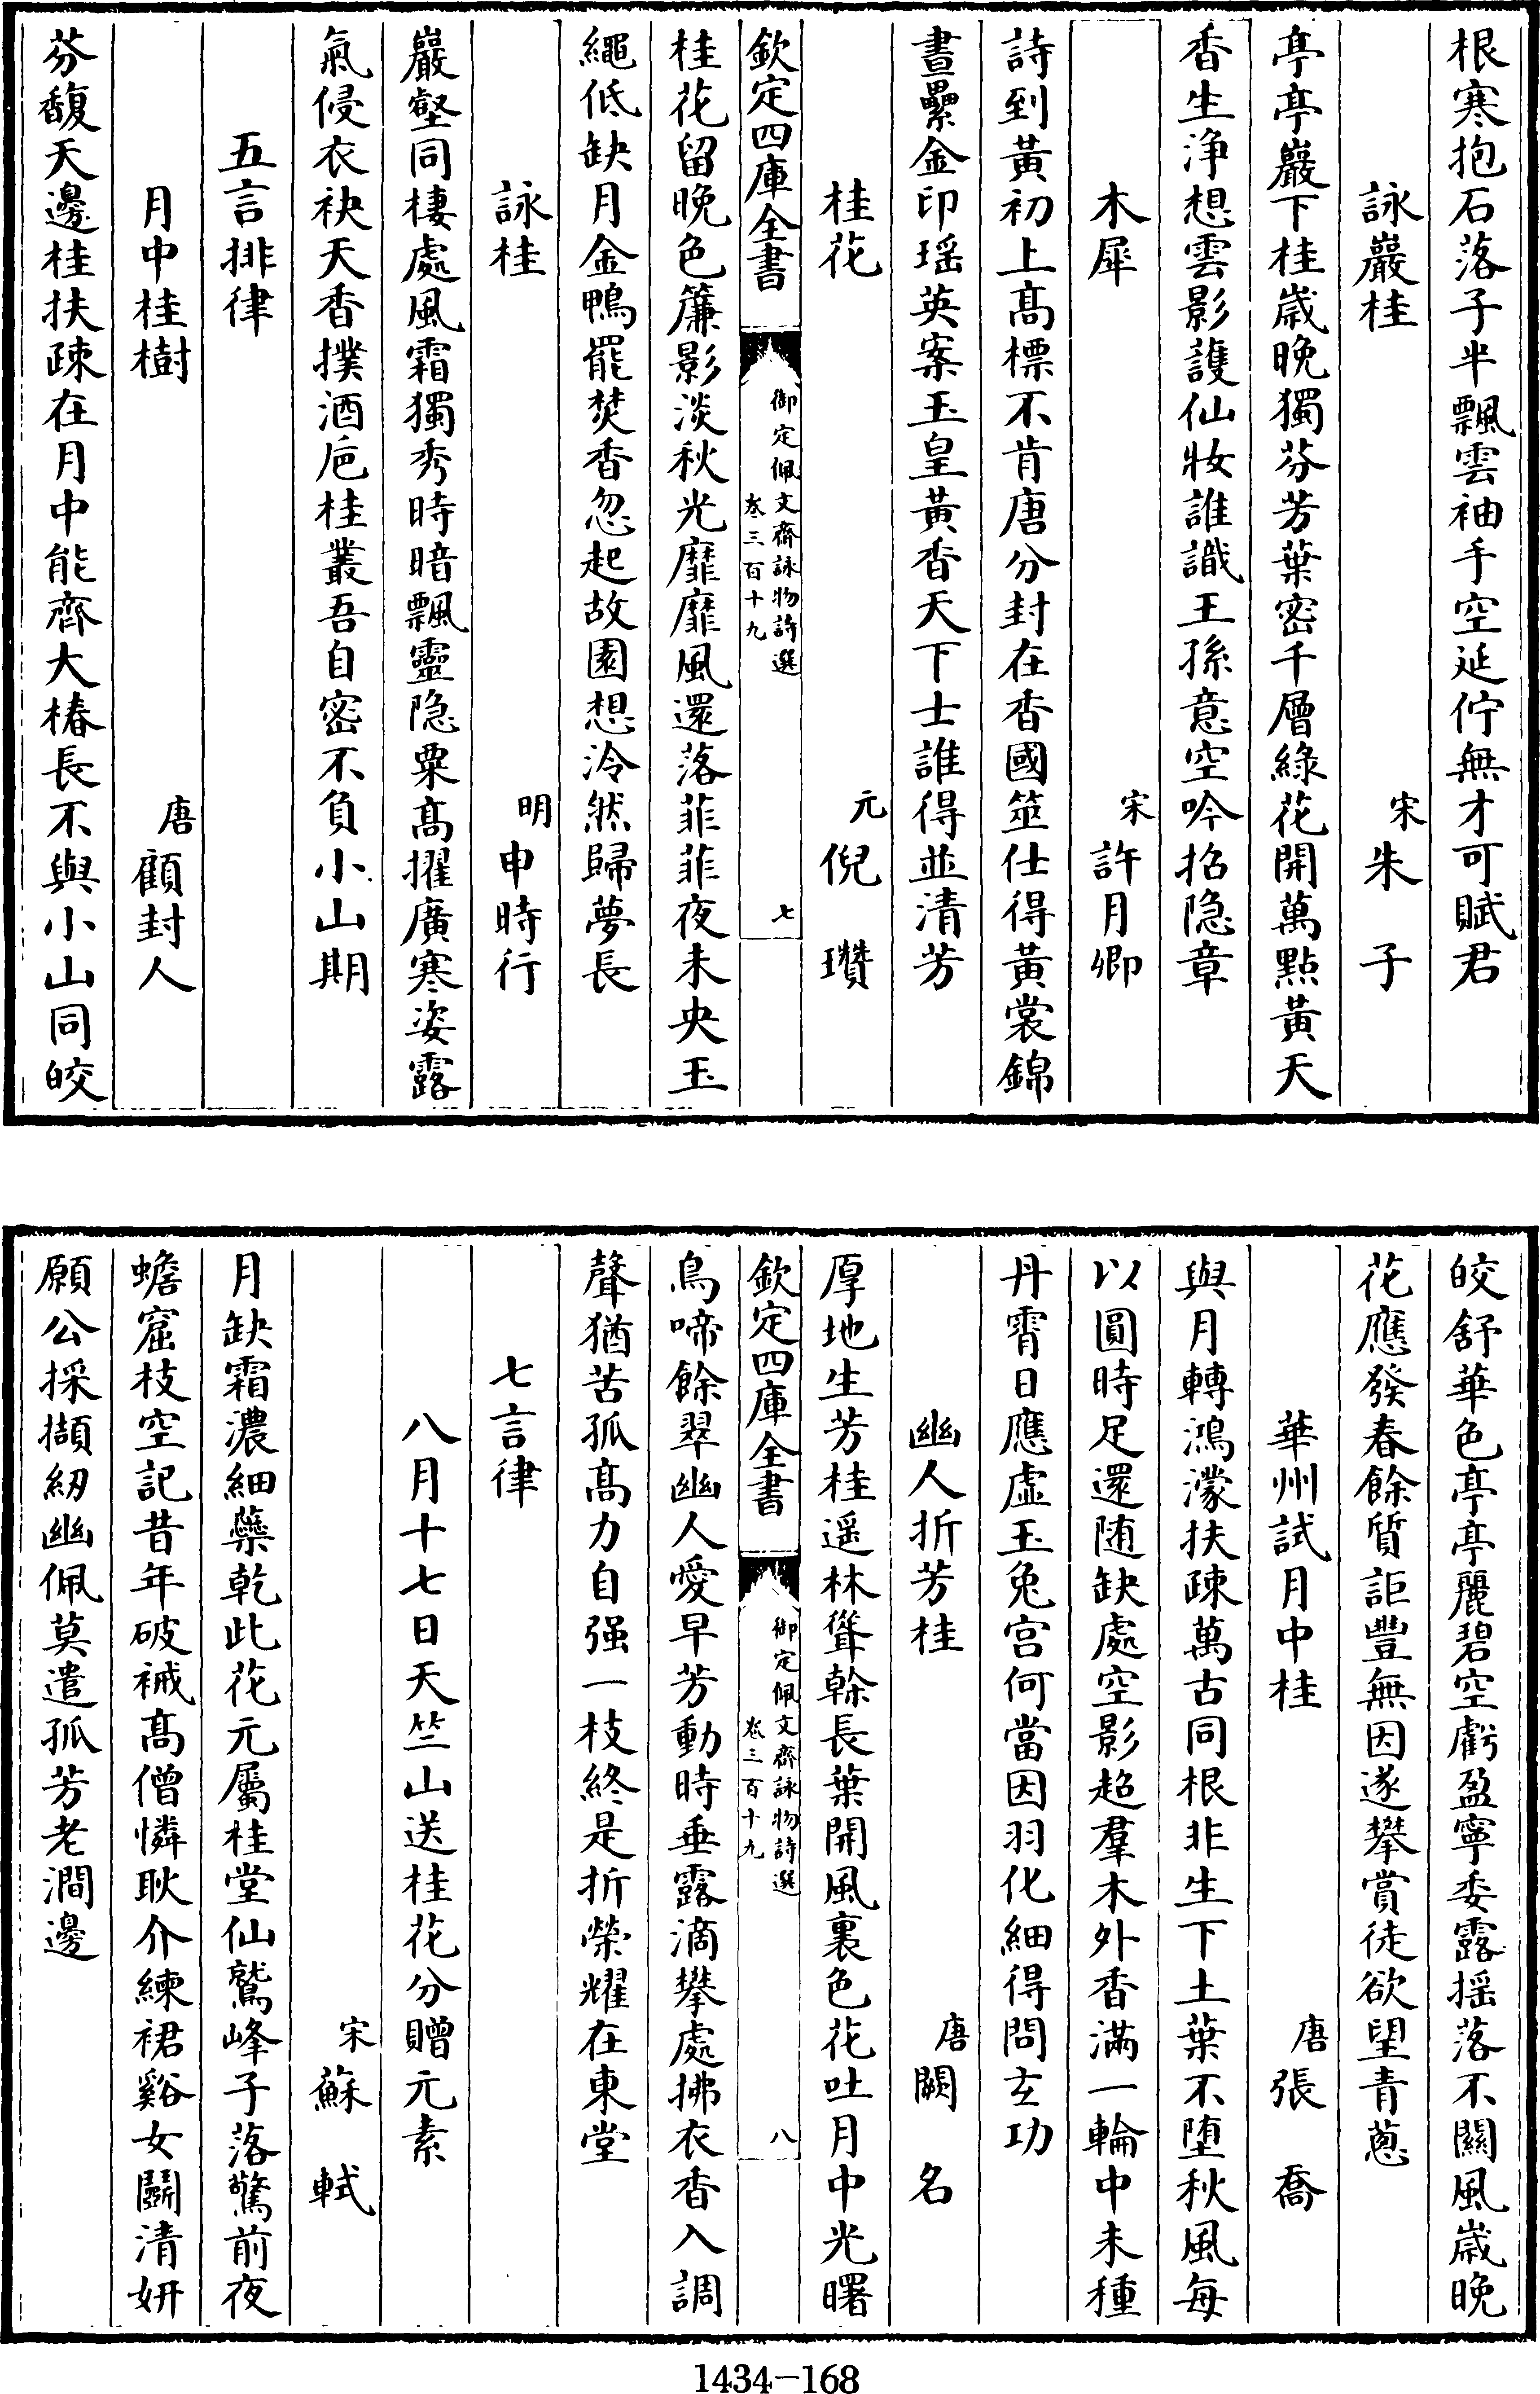 根寒抱石落子半飄雲袖手空延佇無才可賦君
詠巖桂　宋朱子
亭亭巖下桂歲晚獨芬芳葉密千層綠花開萬點黃天
香生浄想雲影護仙妝誰識王孫意空吟招隐章
木犀　宋許月卿
詩到黃初上髙標不肯唐分封在香國筮仕得黃裳錦
晝纍金印瑶英案玉皇黃香天下士誰得並清芳
桂花　元倪瓚
欽定四庫全書
御定佩文齋詠物詩選
卷三百十九
七
桂花留晚色簾影淡秋光靡靡風還落菲菲夜未央玉
繩低缺月金鴨罷焚香忽起故園想泠然歸夢長
詠桂　明申時行
巖壑同棲處風霜獨秀時暗飄靈隐粟髙擢廣寒姿露
氣侵衣袂天香撲酒巵桂叢吾自密不負小山期
五言排律
月中桂樹　唐顧封人
芬馥天邊桂扶疎在月中能齊大椿長不與小山同皎
皎舒華色亭亭麗碧空虧盈寧委露揺落不關風歲晚
花應發春餘質詎豐無因遂攀賞徒欲望青蔥
華州試月中桂　唐張喬
與月轉鴻濛扶疎萬古同根非生下土葉不墮秋風每
以圓時足還随缺處空影超羣木外香滿一輪中未種
丹霄日應虛玉兔宫何當因羽化細得問玄功
幽人折芳桂　唐闕名
厚地生芳桂遥林聳榦長葉開風裏色花吐月中光曙
欽定四庫全書
御定佩文齋詠物詩選
卷三百十九
八
鳥啼餘翠幽人愛早芳動時垂露滴攀處拂衣香入調
聲猶苦孤髙力自强一枝終是折榮耀在東堂
七言律
八月十七日天竺山送桂花分贈元素
宋蘇軾
月缺霜濃細蘂乾此花元屬桂堂仙鷲峰子落驚前夜
蟾窟枝空記昔年破裓髙僧憐耿介練裙谿女鬭清妍
願公採擷紉幽佩莫遣孤芳老澗邊
1434-168